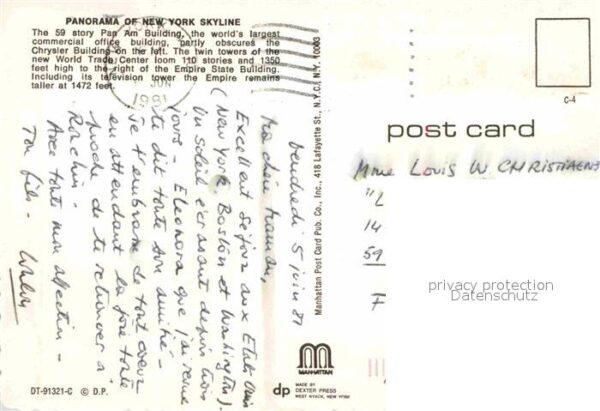 PANORAMA OF NEW YORK SKYLINE
The 59 story Pan Am Building, the world's largest
commercial office building, partly obscures the
Chrysler Building on the left. The twin towers of the
new World Trade Center loom 110 stories and 1350
feet high to the right of the Empire State Building.
Including its television tower the Empire remains
taller at 1472 feet.
JUN
1981
Vendredi 5 juin 81
Ma chère maman,
Excellent séjour aux Etats Unis
(New York. Boston et Washington).
Un soleil écrasant depuis trois
jours - Eleonora que j'ai revue
te dit toute son amitié -
Je t'embrasse de tout coeur
en attendant la joie toute
proche de te retrouver à
Avec toute mon affection -
Ton fils -
DT-91321-C © D.P.
Manhattan Post Card Pub. Co., Inc., 418 Lafayette St., N.Y.C., N.Y. 10003
MANHATTAN
dp
MADE BY
DEXTER PRESS
WEST NYACK, NEW YORK
C-4
post card
Mme LOUIS W CHRISTIAENS
14
59
privacy protection
Datenschutz